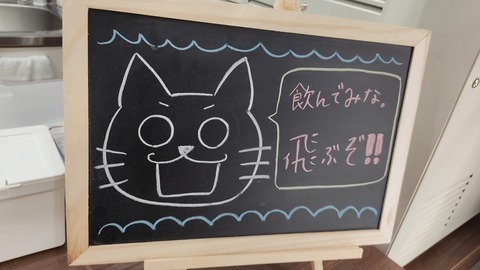 飲んでみな。
飛ぶぞ!!